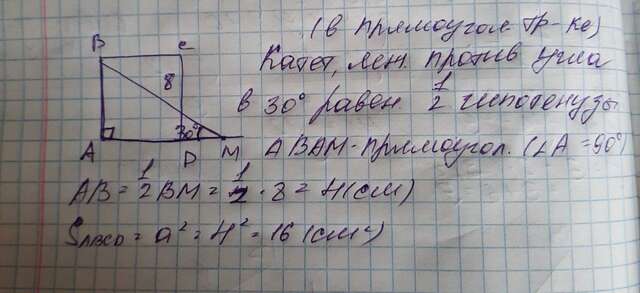 (в прямоугол. тр-ке)
B C
Катет, леж. против угла
8
в 30° равен 1/2 гипотенузы
30°
A D M
△BAM - прямоугол. (∠A = 90°)
AB = 1/2 BM = 1/2 · 8 = 4 (см)
S_ABCD = a² = 4² = 16 (см²)